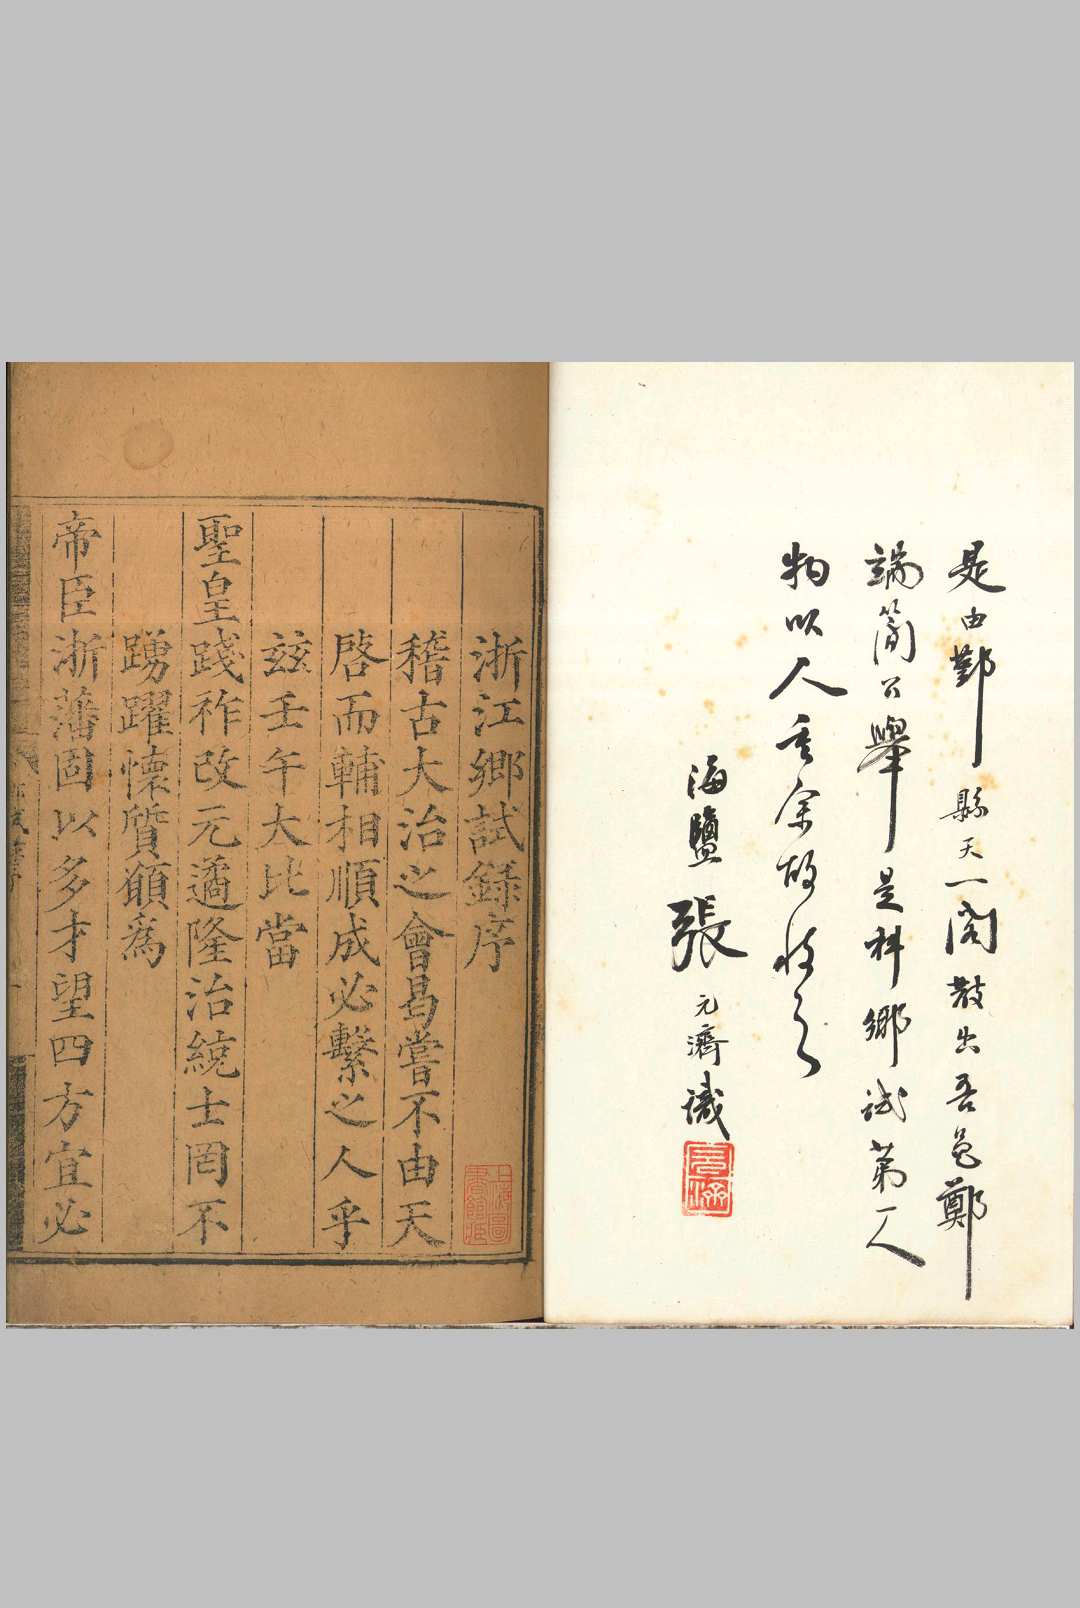 是由鄞縣天一閣散出吾邑鄭
端簡公舉是科鄉試第一人
物以人重余故收之
海鹽張元濟識
浙江鄉試錄序
稽古大治之會曷嘗不由天
啓而輔相順成必繫之人乎
茲壬午大比當
聖皇踐祚改元遹隆治統士罔不
踴躍懷質願爲
帝臣浙藩固以多才望四方宜必
上海圖
書館藏